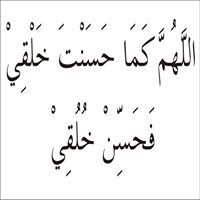 اللَّهُمَّ كَمَا حَسَنْتَ خَلْقِيْ
فَحَسِّنْ خُلُقِيْ